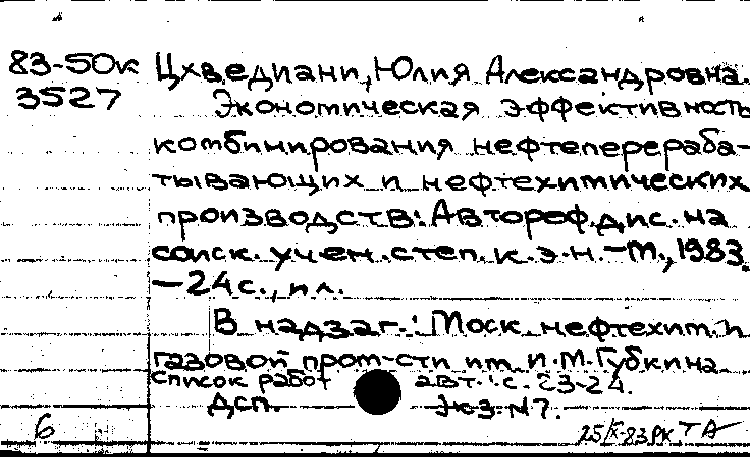 83-50к Цхведиани, Юлия Александровна.
3527 Экономическая эффективность
комбинирования нефтеперераба-
тывающих и нефтехимических
производств: Автореф. дис. на
соиск. учен. степ. к. э. н. – М., 1983
– 24 с., ил.
В надзаг.: Моск. нефтехим. и
газовой пром-сти им. И. М. Губкина
Список работ авт.: с. 23-24.
Дсп. Экз. N7.
6 25/X-83 РК ТА